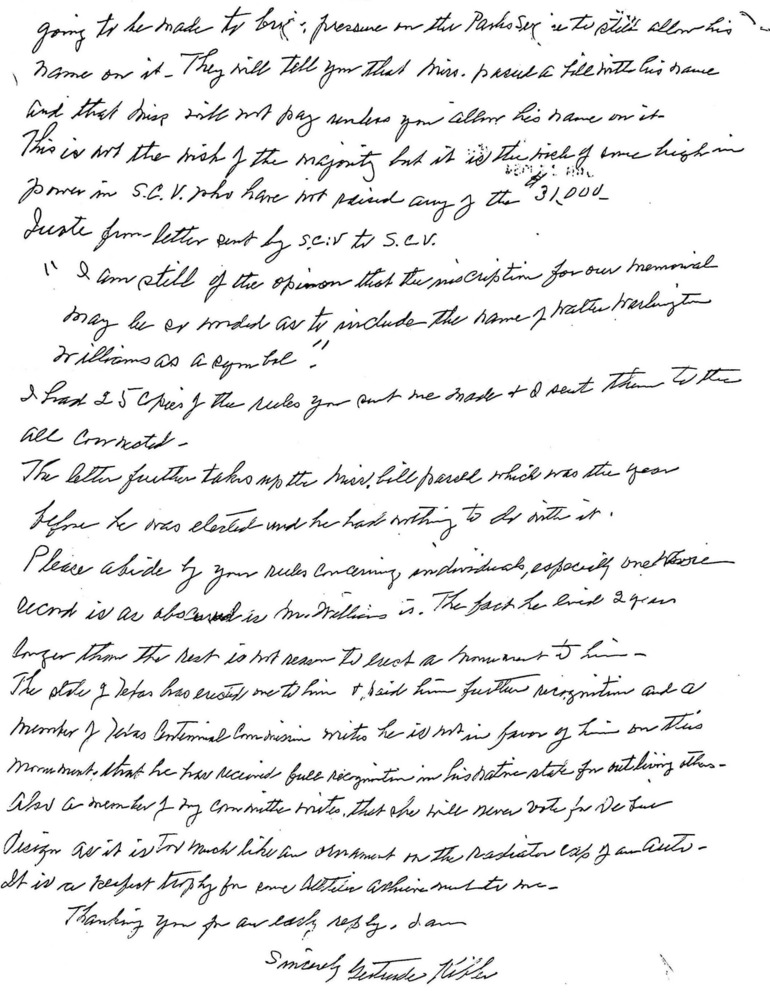 going to be made to bring pressure on the Parks Ser to still allow his
name on it - They will tell you that Miss. passed a bill with his name
and that Miss will not pay unless you allow his name on it -
This is not the wish of the majority but it is the wish of some high in
power in S.C.V. who have not raised any of the $31,000 -
Quote from letter sent by S.C.V to S.C.V.
" I am still of the opinion that the inscription for our memorial
may be so worded as to include the name of Walter Washington
Williams as a symbol "
I had 25 copies of the rules you sent me made + I sent them to the
all connected -
The letter further takes up the Miss. bill passed which was the year
before he was elected and he had nothing to do with it.
Please abide by your rules concerning individuals, especially one whose
record is as obscured is Mr. Williams is. The fact he lived 2 years
longer than the rest is not reason to erect a monument to him -
The state of Texas has erected one to him + paid him further recognition and a
member of Texas Centennial Commission writes he is not in favor of him on this
monument, that he has received full recognition in his native state for outliving others -
Also a member of my committee writes, that she will never vote for De Lue
Design as it is too much like an ornament on the radiator cap of an auto -
It is a perfect trophy for some achievement to me -
Thanking you for an early reply. I am
Sincerely Gertrude